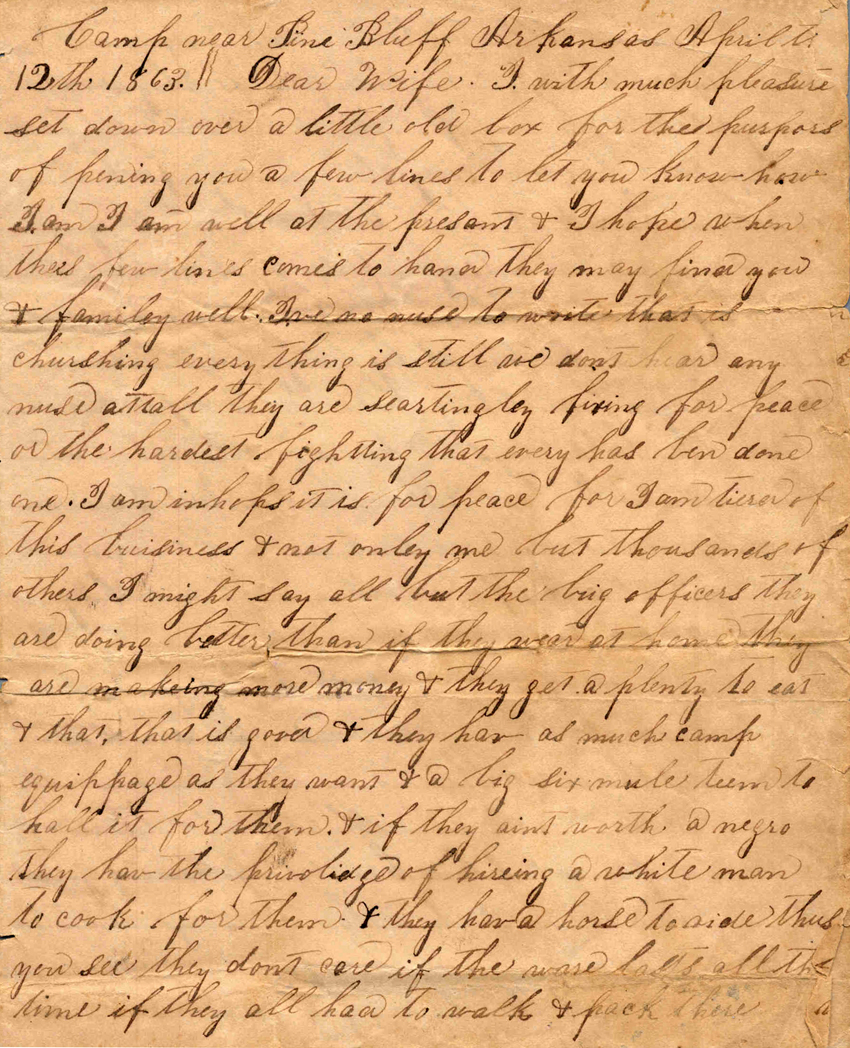 Camp near Pine Bluff Arkansas April th
12th 1863. Dear Wife. I with much pleasure
set down over a little old box for the purpors
of pening you a few lines to let you know how
I am I am well at the presant & I hope when
thees few lines comes to hand they may find you
& familey well. Ive no nuse to write that is
churshing every thing is still we dont hear any
nuse attall they are seartingley fixing for peace
or the hardest fightting that every has ben done
one. I am inhops it is for peace for I am tierd of
this buisiness & not onley me but thousands of
others I might say all but the big officers they
are doing better than if they wear at home they
are makeing more money & they get a plenty to eat
& that, that is good & they hav as much camp
equippage as they want & a big six mule teem to
hall it for them. & if they aint worth a negro
they hav the privolidge of hireing a white man
to cook for them & they hav a horse to ride thus
you see they dont care if the ware lasts all the
time if they all had to walk & pack there